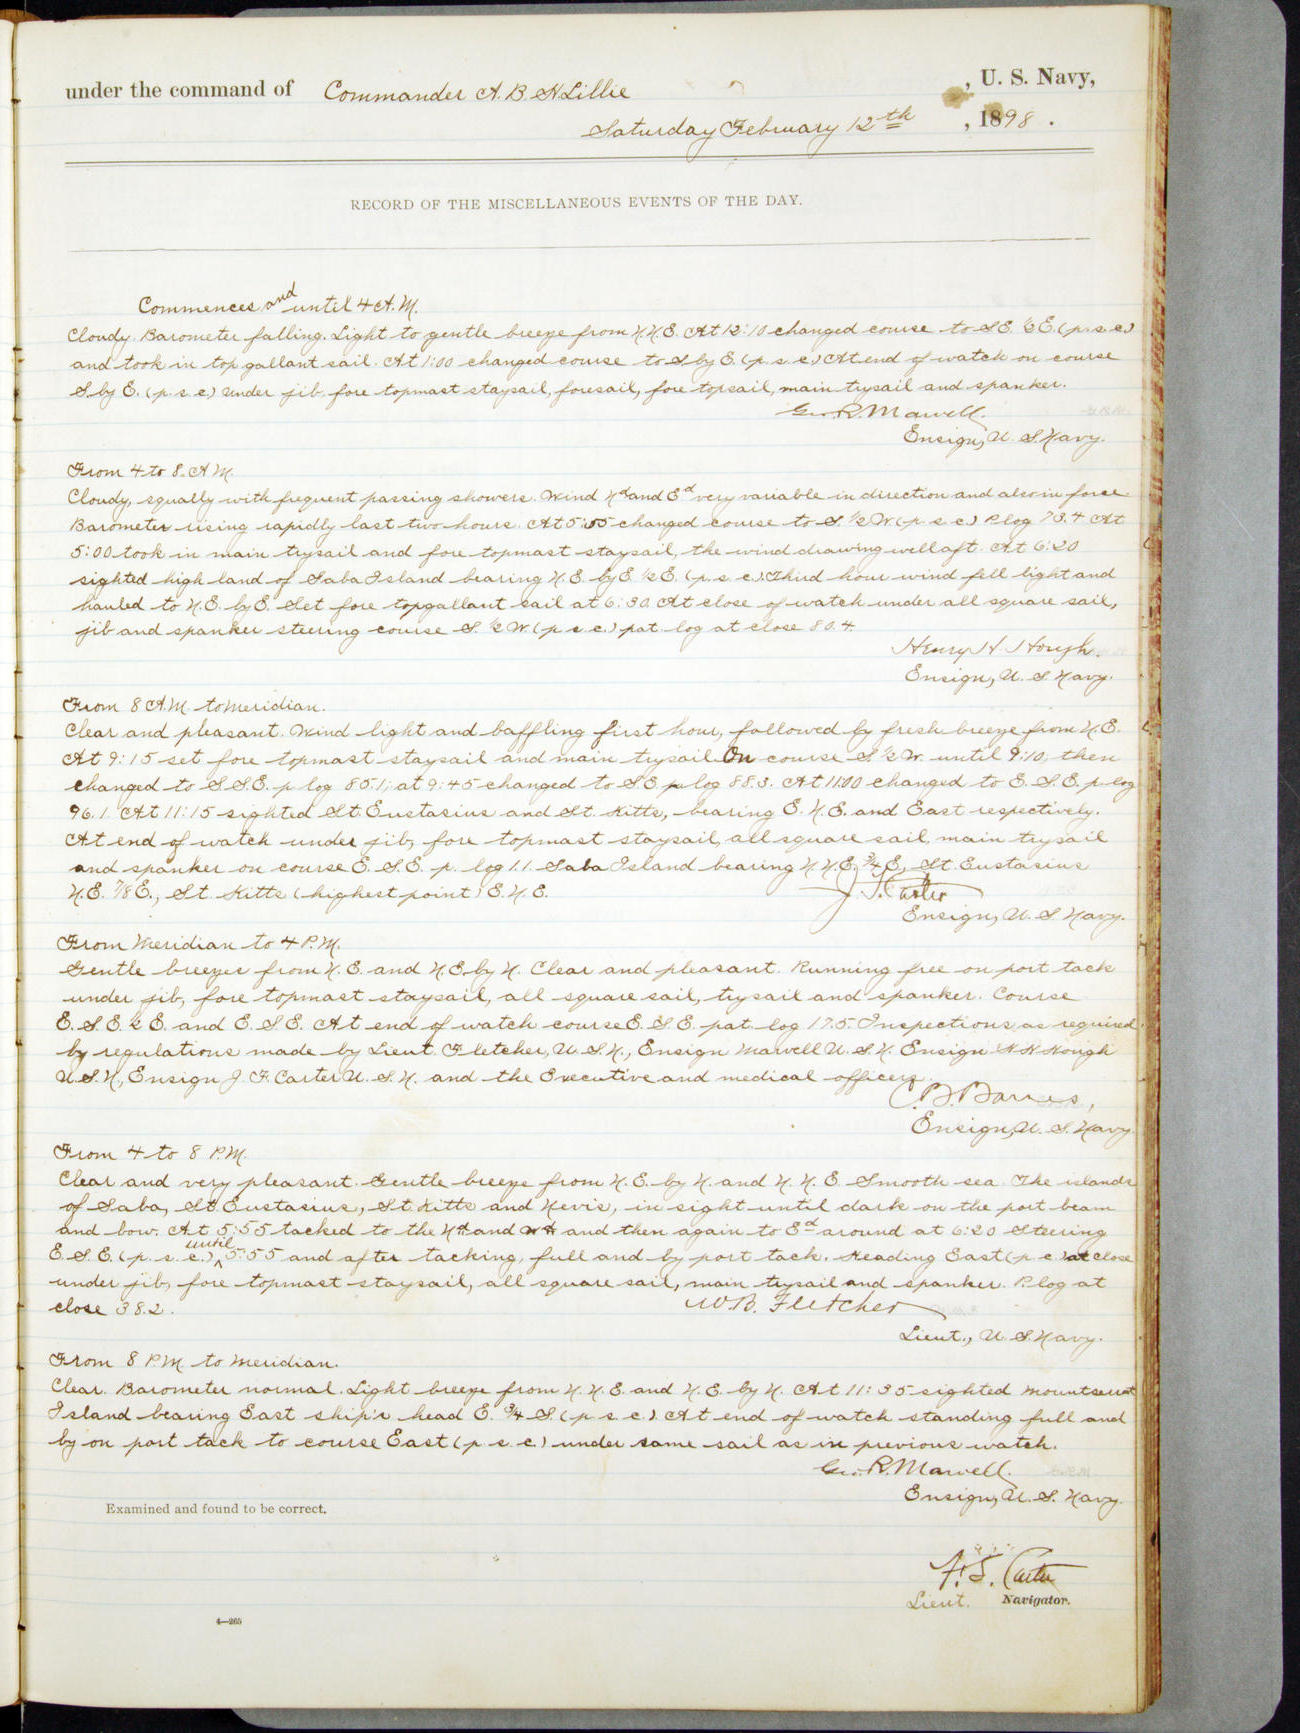 under the command of Commander A. B. H. Lillie , U. S. Navy,
Saturday February 12th , 1898 .
RECORD OF THE MISCELLANEOUS EVENTS OF THE DAY.
Commences and until 4 A.M.
Cloudy. Barometer falling. Light to gentle breeze from N.N.E. At 12:10 changed course to S.E. ½ E. (p.s.c.)
and took in top gallant sail. At 1:00 changed course to S by E. (p.s.c.) At end of watch on course
S. by E. (p.s.c.) under jib, fore topmast staysail, foresail, fore topsail, main trysail and spanker.
Geo. R. Marvell.
Ensign, U. S. Navy.
From 4 to 8. A.M.
Cloudy, squally with frequent passing showers. Wind Nd and Ed very variable in direction and also in force.
Barometer rising rapidly last two hours. At 5:55 changed course to S. ½ W. (p.s.c.) P. log 73.4 At
5:00 took in main trysail and fore topmast staysail, the wind drawing well aft. At 6:20
sighted high land of Saba Island bearing N.E. by E. ½ E. (p.s.c.) Third hour wind fell light and
hauled to N.E. by E. Set fore topgallant sail at 6:30. At close of watch under all square sail,
jib and spanker steering course S. ½ W. (p.s.c.) pat. log at close 80.4.
Henry H. Hough.
Ensign, U. S. Navy.
From 8 A.M. to Meridian.
Clear and pleasant. Wind light and baffling first hour, followed by fresh breeze from N.E.
At 9:15 set fore topmast staysail and main trysail. On course S. ½ W. until 9:10, then
changed to S.S.E. p. log 85.1; at 9:45 changed to S.E. p. log 88.3. At 11:00 changed to E.S.E. p. log
96.1. At 11:15 sighted St. Eustasius and St. Kitts, bearing E.N.E. and East respectively.
At end of watch under jib, fore topmast staysail, all square sail, main trysail
and spanker on course E.S.E. p. log 1.1. Saba Island bearing N.N.E. ¾ E., St. Eustasius
N.E. ⅞ E., St. Kitts (highest point) E.N.E.
J. F. Carter
Ensign, U. S. Navy.
From Meridian to 4 P.M.
Gentle breezes from N.E. and N.E. by N. Clear and pleasant. Running free on port tack
under jib, fore topmast staysail, all square sail, trysail and spanker. Course
E.S.E. ½ E. and E.S.E. At end of watch course E.S.E. pat. log 17.5. Inspections as required
by regulations made by Lieut. Fletcher, U.S.N., Ensign Marvell U.S.N. Ensign H H Hough
U.S.N., Ensign J. F. Carter U.S.N. and the Executive and medical officers.
C. B. Barnes,
Ensign, U. S. Navy.
From 4 to 8 P.M.
Clear and very pleasant. Gentle breeze from N.E. by N. and N.N.E. Smooth sea. The islands
of Saba, St Eustasius, St Kitts and Nevis, in sight until dark on the port beam
and bow. At 5:55 tacked to the Nd and Wd and then again to Ed around at 6:20 Steering
E.S.E. (p.s.c.) until 5:55 and after tacking, full and by port tack. Heading East (p.c.) at close
under jib, fore topmast staysail, all square sail, main trysail and spanker. P. log at
close 38.2.
W. B. Fletcher
Lieut., U. S. Navy.
From 8 P.M. to Meridian.
Clear. Barometer normal. Light breeze from N.N.E. and N.E. by N. At 11:35 sighted Mountserrat
Island bearing East ship's head E. ¾ S. (p.s.c.). At end of watch standing full and
by on port tack to course East (p.s.c.) under same sail as in previous watch.
Geo. R. Marvell.
Ensign, U. S. Navy.
Examined and found to be correct.
Carter
Lieut. Navigator.
4—265